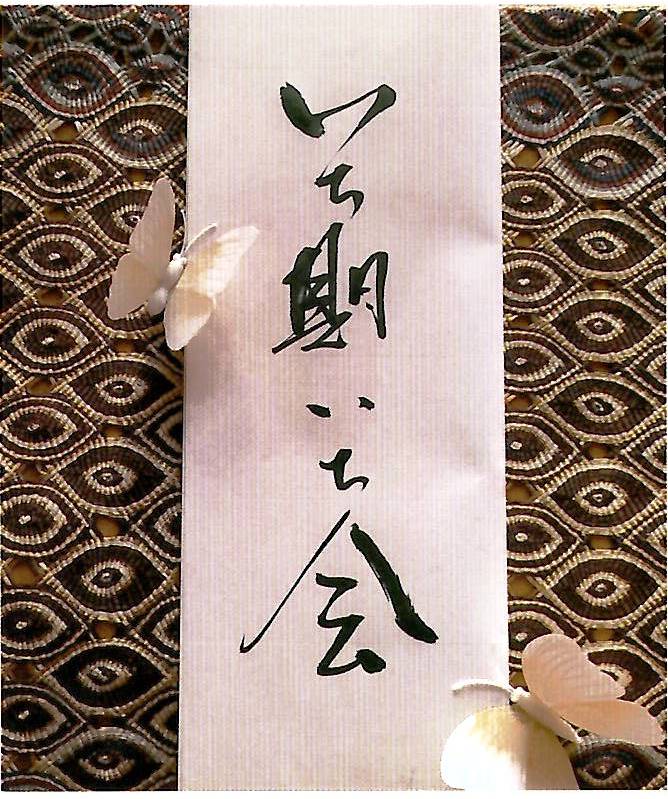 いち期いち会